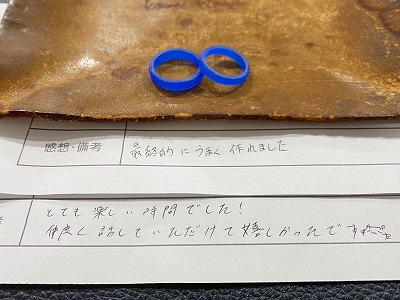 感想・備考
最終的にうまく作れました
とても楽しい時間でした!
仲良く話していただけて嬉しかったです